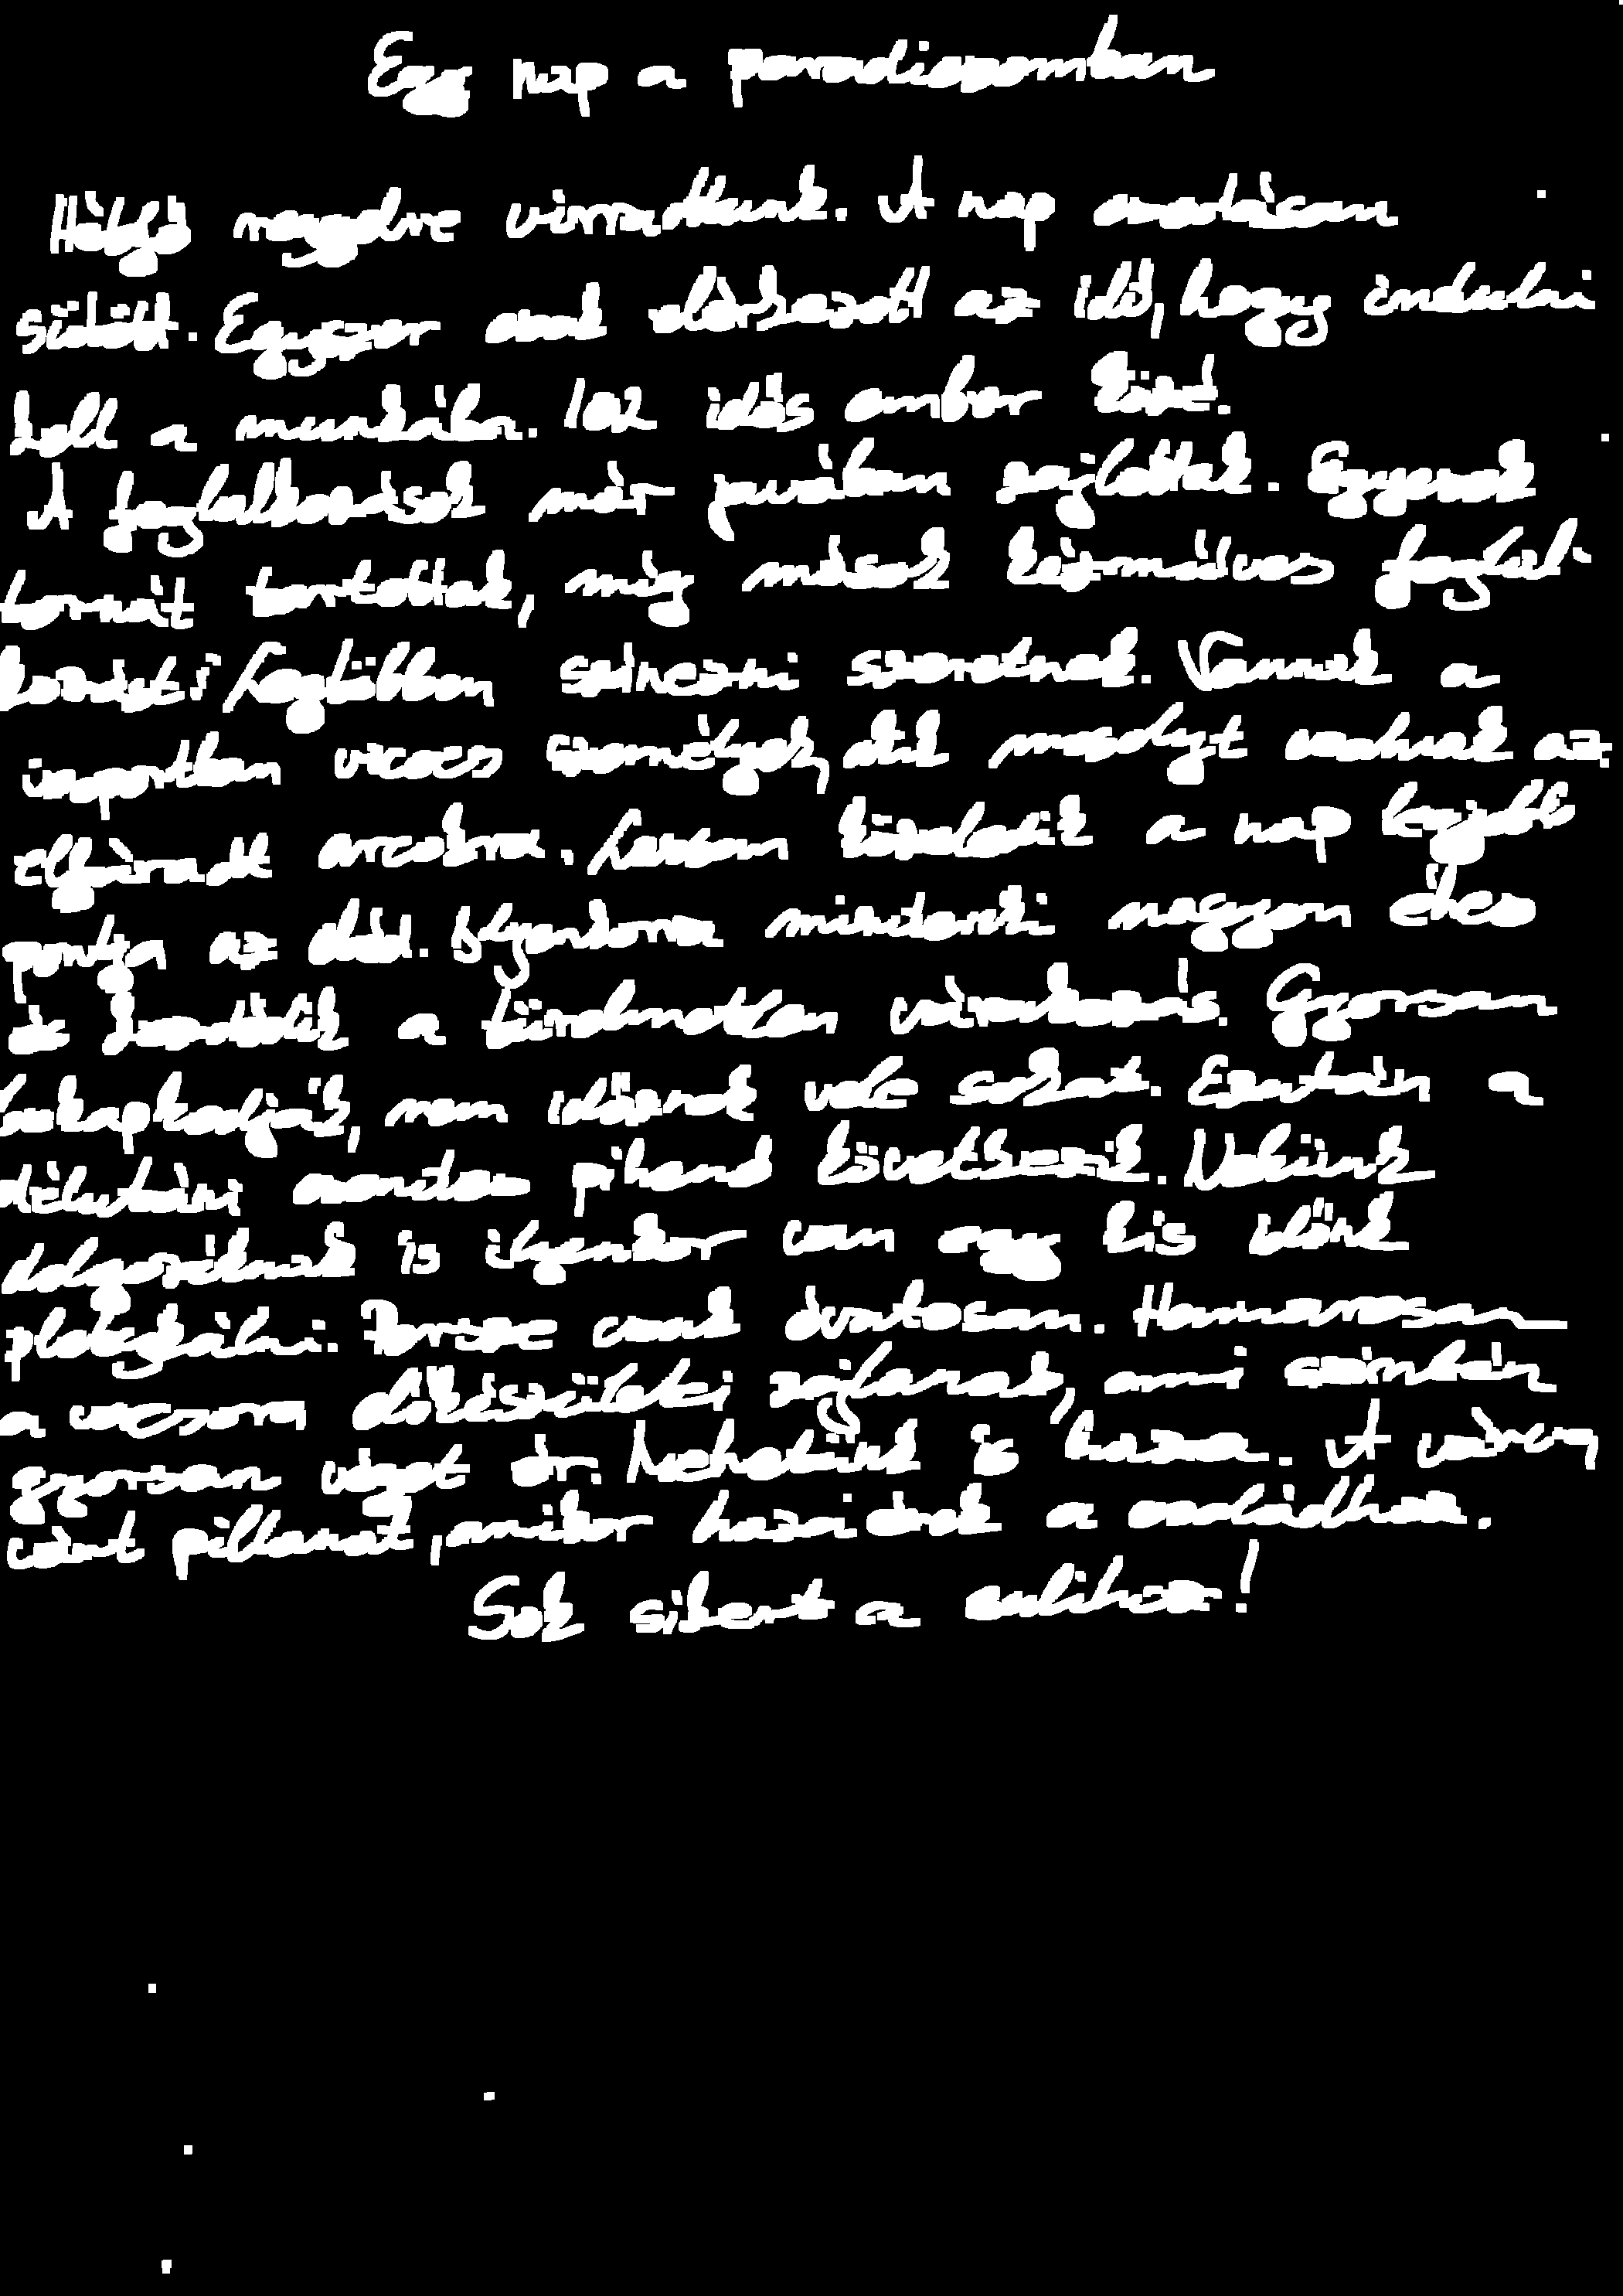 Egy nap a paradicsomban
Hétfő reggelre virradtunk. A nap csodásan
sütött. Egyszer csak elérkezett az idő, hogy indulni
kell a munkába. 102 idős ember közé.
A foglalkozások már javában zajlottak. Egyesek
tornát tartottak, míg mások kézműves foglal-
kozást. Legtöbben színezni szeretnek. Vannak a
csoportban vicces személyek, akik mosolyt csalnak az
elfáradt arcokra. Lassan közeledik a nap legjobb
pontja az ebéd. Ilyenkorra mindenki nagyon éhes
és kezdődik a türelmetlen várakozás. Gyorsan
bekapkodják, nem időznek vele sokat. Ezután a
délutáni csendes pihenő következik. Nekünk
dolgozóknak is ilyenkor van egy kis időnk
pletykálni. Persze csak óvatosan. Hamarosan
a vacsora előkészületei zajlanak, ami szintén
gyorsan véget ér. Mehetünk is haza. A várva
várt pillanat, amikor hazaérek a családhoz.
Sok sikert a sulihoz!